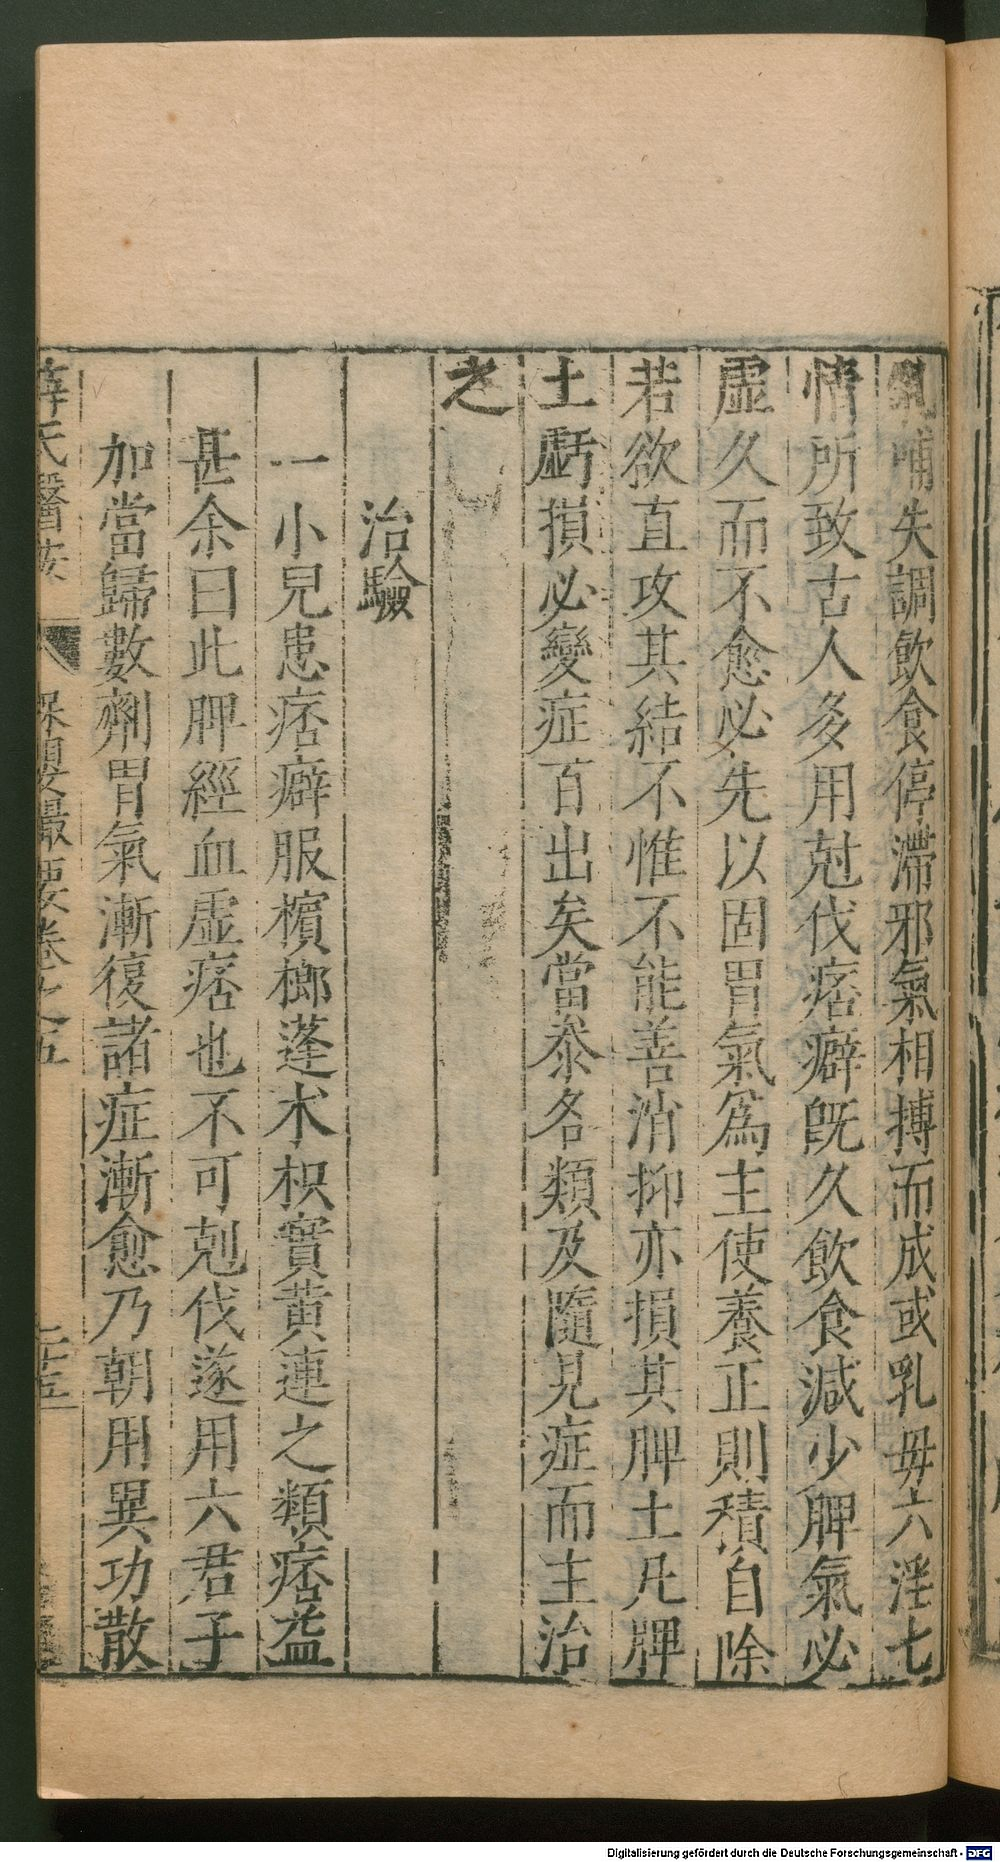 乳哺失調飲食停滯邪氣相搏而成或乳母六淫七
情所致古人多用尅伐痞癖旣久飲食減少脾氣必
虛久而不愈必先以固胃氣爲主使養正則積自除
若欲直攻其結不惟不能善消抑亦損其脾土凡脾
土虧損必變症百出矣當叅各類及隨見症而主治
之
治驗
一小兒患痞癖服檳榔蓬朮枳實黃連之類痞益
甚余曰此脾經血虛痞也不可剋伐遂用六君子
加當歸數劑胃氣漸復諸症漸愈乃朝用異功散
薛氏醫按 保嬰撮要卷之五 二十五
Digitalisierung gefördert durch die Deutsche Forschungsgemeinschaft - DFG